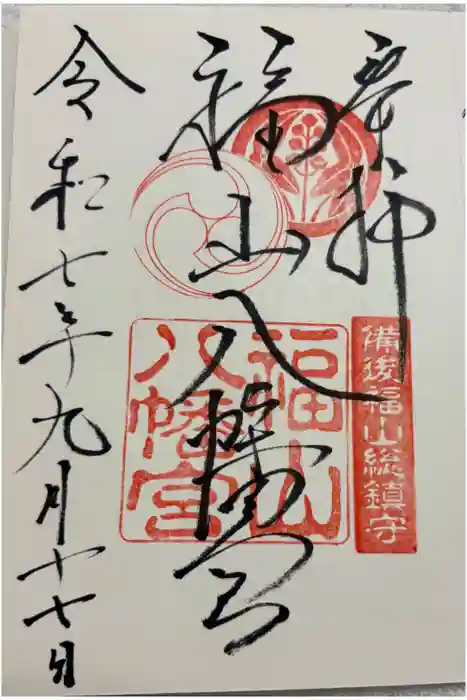 奉拝
備後福山総鎮守
福山八幡宮
福山
八幡宮
令和七年九月十七日